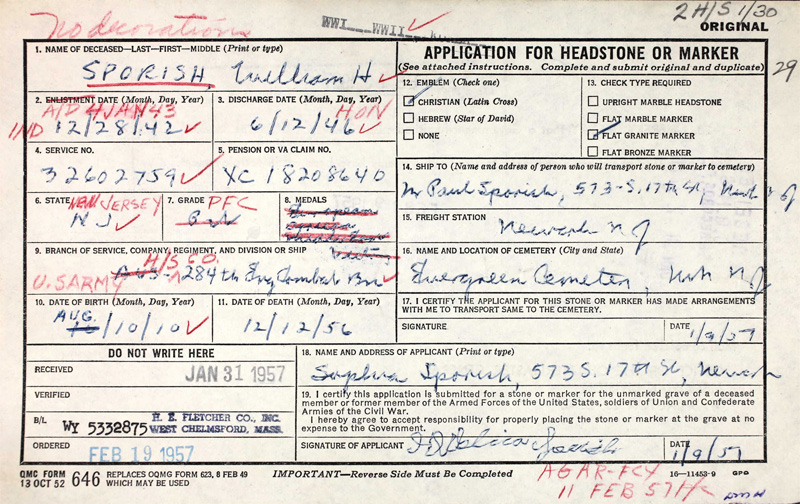 No decorations
WWI WWII
2 H/S 1/30
ORIGINAL
29
1. NAME OF DECEASED—LAST—FIRST—MIDDLE (Print or type)
SPORISH, William H
APPLICATION FOR HEADSTONE OR MARKER
(See attached instructions. Complete and submit original and duplicate)
2. ENLISTMENT DATE (Month, Day, Year)
A/D 4 JAN 43
IND 12/28/42
3. DISCHARGE DATE (Month, Day, Year)
HON
6/12/46
12. EMBLEM (Check one)
CHRISTIAN (Latin Cross)
HEBREW (Star of David)
NONE
13. CHECK TYPE REQUIRED
UPRIGHT MARBLE HEADSTONE
FLAT MARBLE MARKER
FLAT GRANITE MARKER
FLAT BRONZE MARKER
4. SERVICE NO.
32602759
5. PENSION OR VA CLAIM NO.
XC 18208640
14. SHIP TO (Name and address of person who will transport stone or marker to cemetery)
Mr Paul Sporish, 573-S. 17th St,
6. STATE
NEW JERSEY
N J
7. GRADE
PFC
8. MEDALS
15. FREIGHT STATION
Newark N J
9. BRANCH OF SERVICE, COMPANY, REGIMENT, AND DIVISION OR SHIP
H/S CO.
U.S. ARMY 284th Eng Combat Bn
16. NAME AND LOCATION OF CEMETERY (City and State)
Evergreen Cemetery, N J
10. DATE OF BIRTH (Month, Day, Year)
AUG.
/10/10
11. DATE OF DEATH (Month, Day, Year)
12/12/56
17. I CERTIFY THE APPLICANT FOR THIS STONE OR MARKER HAS MADE ARRANGEMENTS
WITH ME TO TRANSPORT SAME TO THE CEMETERY.
SIGNATURE
DATE 1/9/57
DO NOT WRITE HERE
RECEIVED
JAN 31 1957
18. NAME AND ADDRESS OF APPLICANT (Print or type)
Sophia Sporish, 573 S. 17th St, Newark
VERIFIED
19. I certify this application is submitted for a stone or marker for the unmarked grave of a deceased
member or former member of the Armed Forces of the United States, soldiers of Union and Confederate
Armies of the Civil War.
I hereby agree to accept responsibility for properly placing the stone or marker at the grave at no
expense to the Government.
B/L
WY 5332875
H. E. FLETCHER CO., INC.
WEST CHELMSFORD, MASS.
ORDERED
FEB 19 1957
SIGNATURE OF APPLICANT
Sporish
DATE
1/9/57
QMC FORM
13 OCT 52 646 REPLACES OQMG FORM 623, 8 FEB 49
WHICH MAY BE USED
IMPORTANT—Reverse Side Must be Completed
16—11453-9 GPO
AGAR-FCY
11 FEB 57